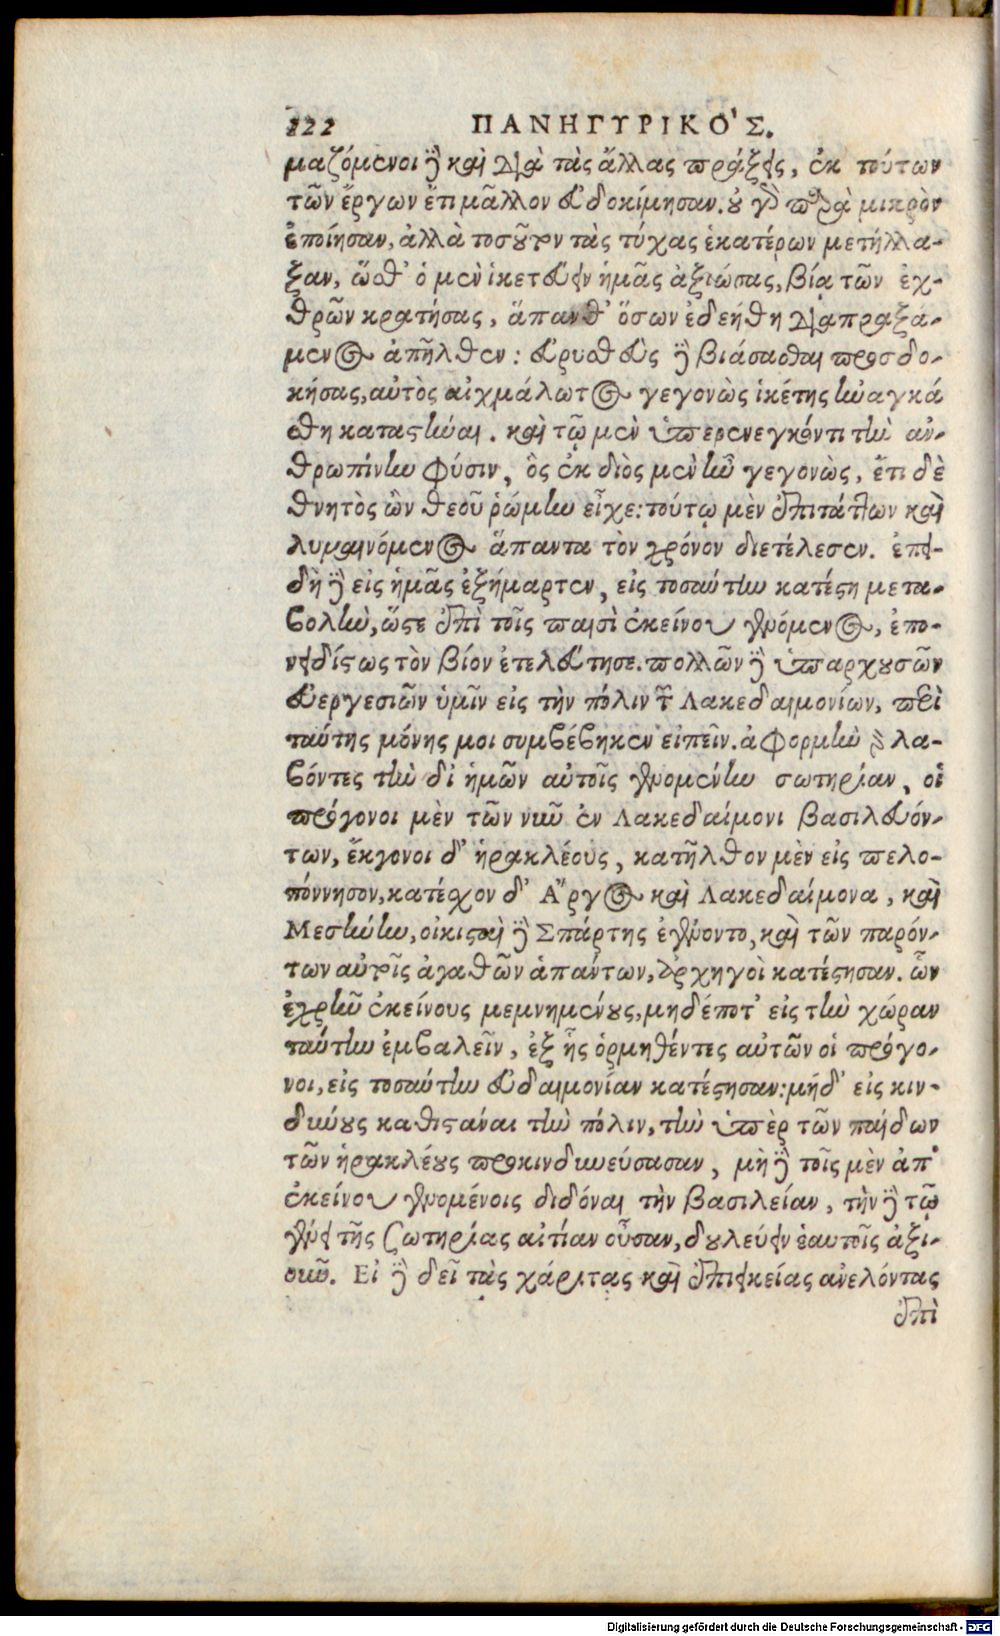 122 ΠΑΝΗΓΥΡΙΚΟ'Σ.
μαζόμενοι δὲ καὶ διὰ τὰς ἄλλας πράξεις, ἐκ τούτων
τῶν ἔργων ἔτι μᾶλλον εὐδοκίμησαν. οὐ γὰρ παρὰ μικρὸν
ἐποίησαν, ἀλλὰ τοσοῦτον τὰς τύχας ἑκατέρων μετήλλα-
ξαν, ὥσθ' ὁ μὲν ἱκετεύειν ἡμᾶς ἀξιώσας, βίᾳ τῶν ἐχ-
θρῶν κρατήσας, ἅπανθ' ὅσων ἐδεήθη διαπραξά-
μενος ἀπῆλθεν: εὐρυσθεὺς δὲ βιάσασθαι προσδο-
κήσας, αὐτὸς αἰχμάλωτος γεγονὼς ἱκέτης ἠναγκά
σθη καταστῆναι. καὶ τῷ μὲν ὑπερενεγκόντι τὴν ἀν-
θρωπίνην φύσιν, ὃς ἐκ διὸς μὲν ἦν γεγονὼς, ἔτι δὲ
θνητὸς ὢν θεοῦ ῥώμην εἶχε: τούτῳ μὲν ἐπιτάττων καὶ
λυμαινόμενος ἅπαντα τὸν χρόνον διετέλεσεν. ἐπει-
δὴ δὲ εἰς ἡμᾶς ἐξήμαρτεν, εἰς τοσαύτην κατέστη μετα-
βολὴν, ὥστε ἐπὶ τοῖς παισὶ ἐκείνου γενόμενος, ἐπο-
νειδίστως τὸν βίον ἐτελεύτησε. πολλῶν δὲ ὑπαρχουσῶν
εὐεργεσιῶν ὑμῖν εἰς τὴν πόλιν τῶν Λακεδαιμονίων, περὶ
ταύτης μόνης μοι συμβέβηκεν εἰπεῖν. ἀφορμὴν γὰρ λα-
βόντες τὴν δι' ἡμῶν αὐτοῖς γενομένην σωτηρίαν, οἱ
πρόγονοι μὲν τῶν νῦν ἐν Λακεδαίμονι βασιλευόν-
των, ἔκγονοι δ' ἡρακλέους, κατῆλθον μὲν εἰς πελο-
πόννησον, κατέσχον δ' Ἄργος καὶ Λακεδαίμονα, καὶ
Μεσήνην, οἰκισταὶ δὲ Σπάρτης ἐγένοντο, καὶ τῶν παρόν-
των αὐτοῖς ἀγαθῶν ἁπάντων, ἀρχηγοὶ κατέστησαν. ὧν
ἐχρῆν ἐκείνους μεμνημένους, μηδέποτ' εἰς τὴν χώραν
ταύτην ἐμβαλεῖν, ἐξ ἧς ὁρμηθέντες αὐτῶν οἱ πρόγο-
νοι, εἰς τοσαύτην εὐδαιμονίαν κατέστησαν: μήδ' εἰς κιν-
δύνους καθιστάναι τὴν πόλιν, τὴν ὑπὲρ τῶν παίδων
τῶν ἡρακλέους προκινδυνεύσασαν, μὴ δὲ τοῖς μὲν ἀπ'
ἐκείνου γενομένοις διδόναι τὴν βασιλείαν, τὴν δὲ τῷ
γένει τῆς σωτηρίας αἰτίαν οὖσαν, δουλεύειν ἑαυτοῖς ἀξι-
οῦν. Εἰ δὲ δεῖ τὰς χάριτας καὶ ἐπιεικείας ἀνελόντας
ἐπὶ
Digitalisierung gefördert durch die Deutsche Forschungsgemeinschaft - DFG